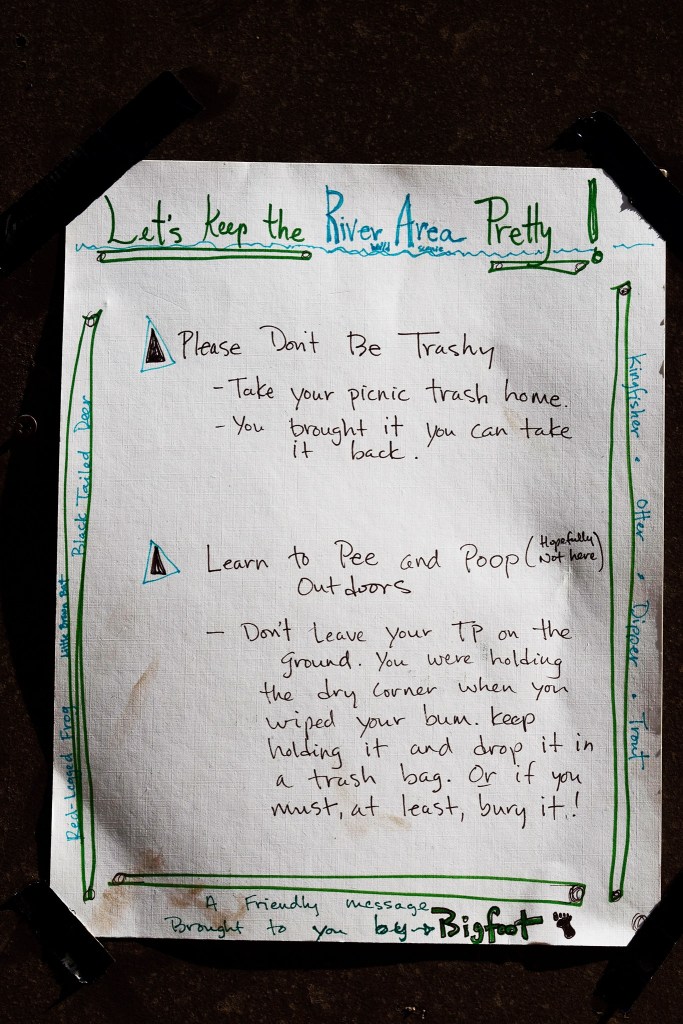 Let's Keep the River Area Pretty!
Please Don't Be Trashy
- Take your picnic trash home.
- You brought it you can take
it back.
Learn to Pee and Poop (Hopefully Not here)
Outdoors
- Don't Leave your TP on the
ground. You were holding
the dry corner when you
wiped your bum. Keep
holding it and drop it in
a trash bag. Or if you
must, at least, bury it!
Black Tailed Deer
Little Brown Bat
Red-Legged Frog
Kingfisher • Otter • Dipper • Trout
A Friendly message
Brought to you by → Bigfoot